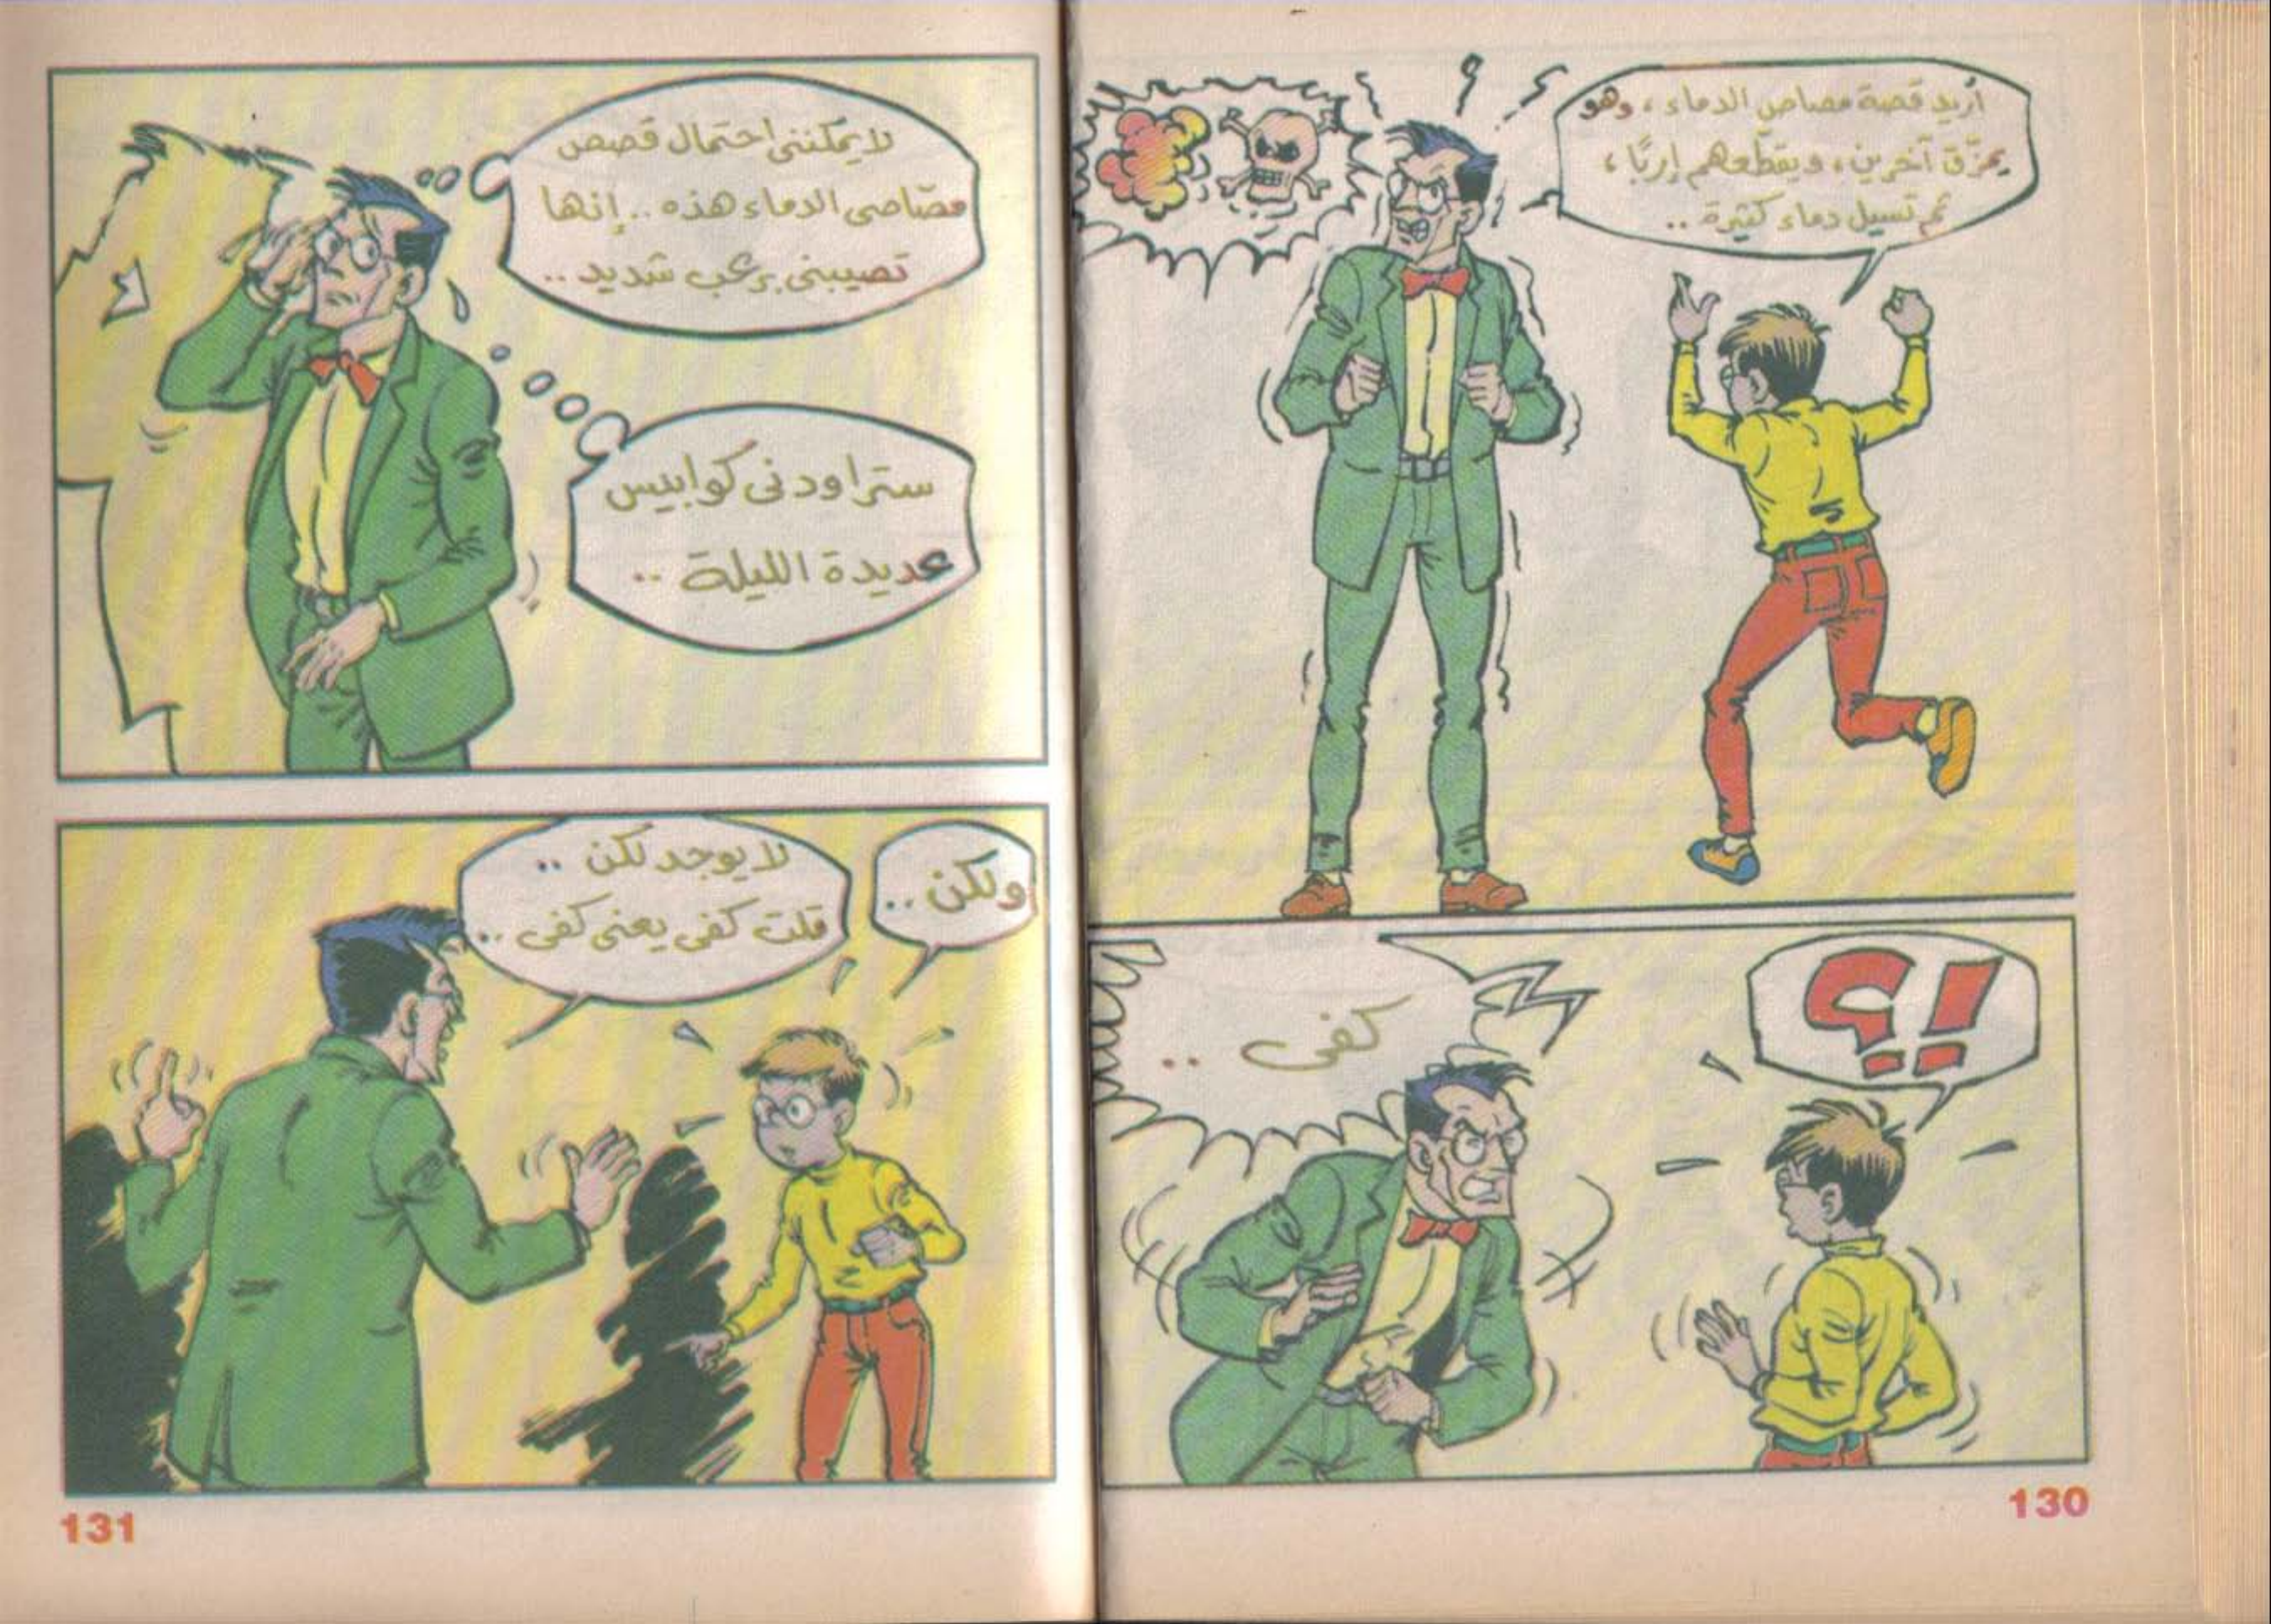 أريد قصة مصاص الدماء ، وهو
يمزّق آخرين ، ويقطّعهم إربًا ،
ثم تسيل دماء كثيرة ..
!؟
كفى ..
130
لا يمكننى احتمال قصص
مصّاصى الدماء هذه .. إنها
تصيبنى برعب شديد ..
ستراودنى كوابيس
عديدة الليلة ..
ولكن ..
لا يوجد لكن ..
قلت كفى يعنى كفى ..
131